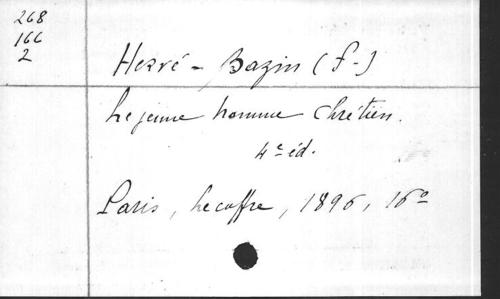 268
166
2
Hervé-Bazin (F-)
Le jeune homme chrétien.
4e éd.
Paris, Lecoffre, 1896, 16o